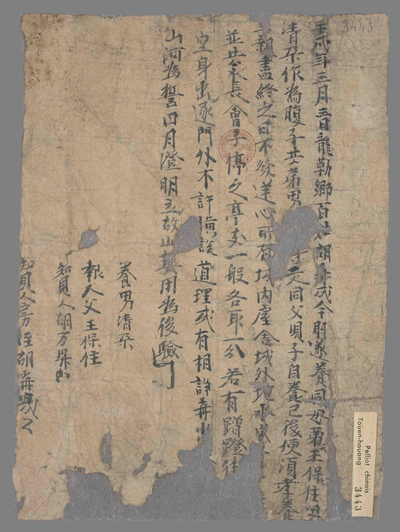 壬戌年三月三日龍勒鄉百姓胡再成今則遂養同母弟王保住男
清朵作為腹子共弟男 二人同父兒子自養已後便須孝養
二親盡終之日不發逆心所有城內屋舍城外地水家
並共永長會子停之亭支一般各取一分若有蹭蹬往
空身出逐門外不許橫說道理或有相諍再出
山河為誓日月證明故立此契用為後驗
養男清朵
報人父王保住
知見人胡万昇
知見人房侄胡再晟
3443
Pelliot chinois
Touen-houang
3443